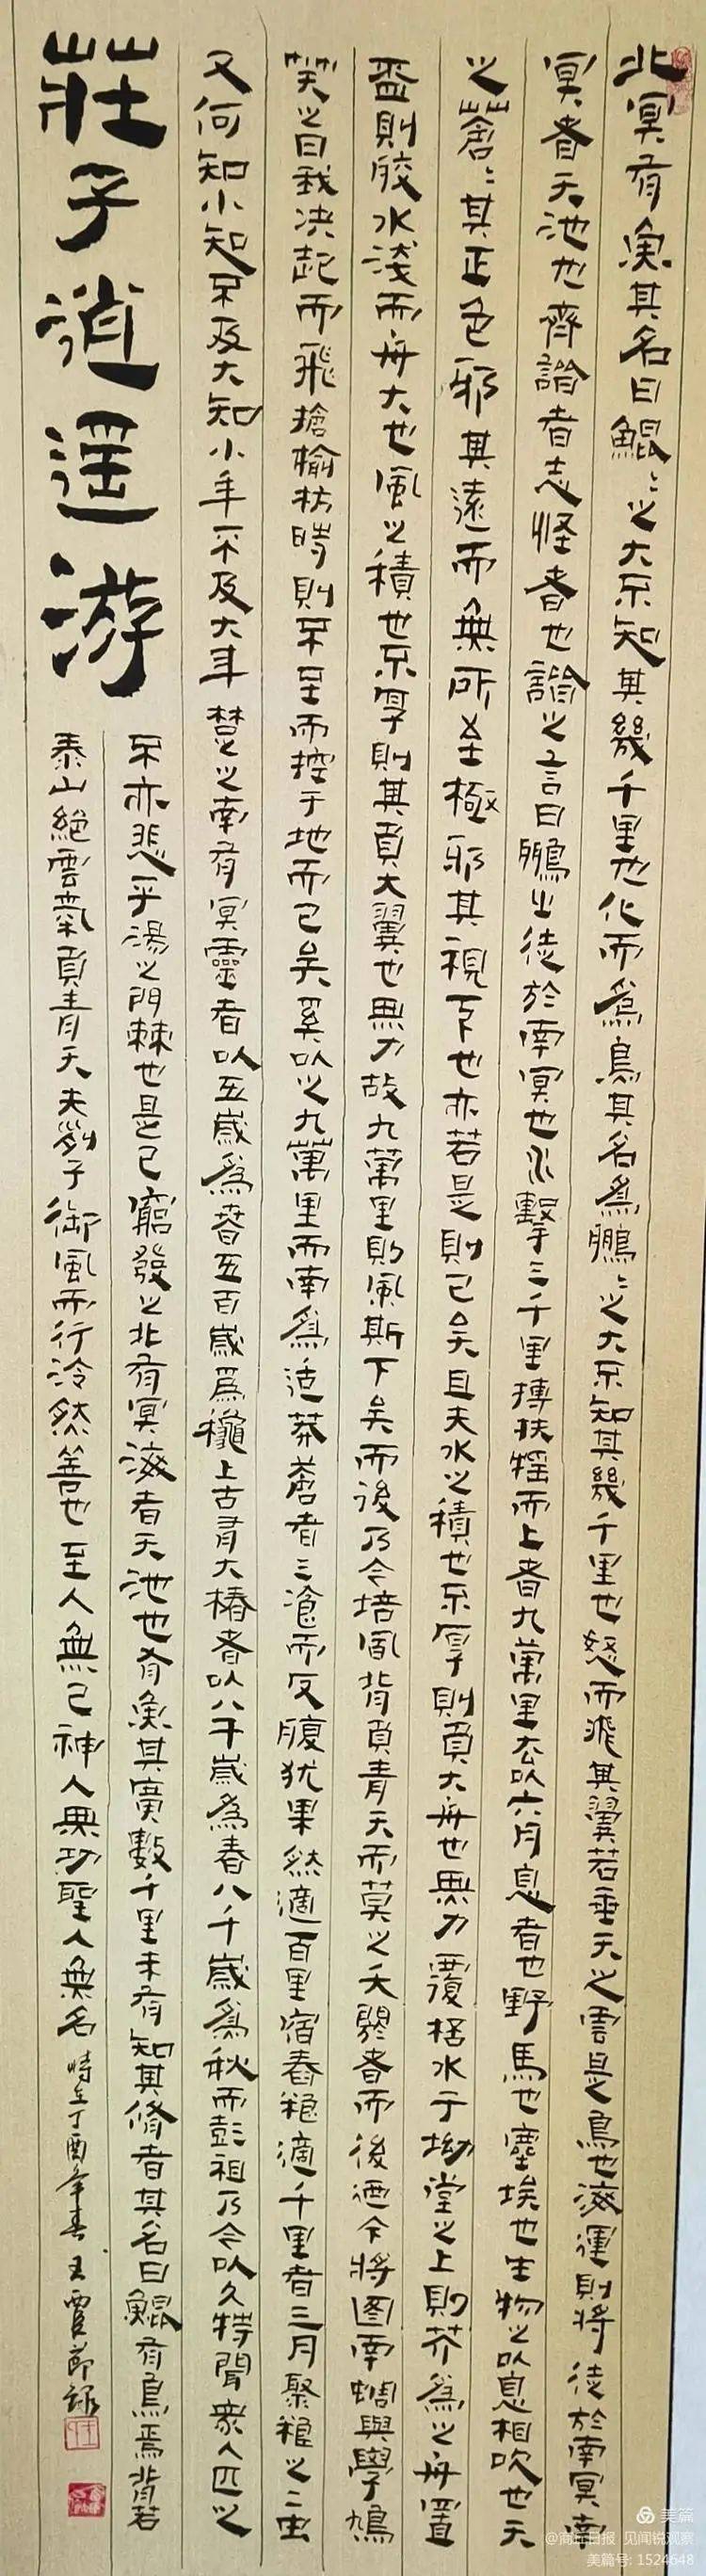 莊子逍遥游
北冥有魚其名曰鯤〻之大不知其幾千里也化而為鳥其名為鵬〻之大不知其幾千里也怒而飛其翼若垂天之雲是鳥也海運則將徙於南冥南
冥者天池也齊諧者志怪者也諧之言曰鵬之徙於南冥也水擊三千里摶扶摇而上者九萬里去以六月息者也野馬也塵埃也生物之以息相吹也天
之蒼〻其正色邪其遠而無所至極邪其視下也亦若是則已矣且夫水之積也不厚則負大舟也無力覆桮水于坳堂之上則芥為之舟置
盃則胶水淺而舟大也風之積也不厚則其負大翼也無力故九萬里則風斯下矣而後乃今培風背負青天而莫之夭閼者而後迺今將图南蜩與學鳩
笑之曰我决起而飛搶榆枋時則不至而控于地而已矣奚以之九萬里而南為适莽蒼者三飡而反腹犹果然適百里宿舂粮適千里者三月聚粮之二虫
又何知小知不及大知小年不及大年楚之南有冥靈者以五歲為春五百歲為穐上古有大椿者以八千歲為春八千歲為秋而彭祖乃今以久特聞衆人匹之
不亦悲乎湯之問棘也是已窮發之北有冥海者天池也有魚其廣數千里未有知其修者其名曰鯤有鳥焉背若
泰山絕雲氣負青天夫列子御風而行泠然善也至人無己神人無功聖人無名時在丁酉年春王節録
美篇
@商丘日报 见闻锐观察
美篇号: 1524648